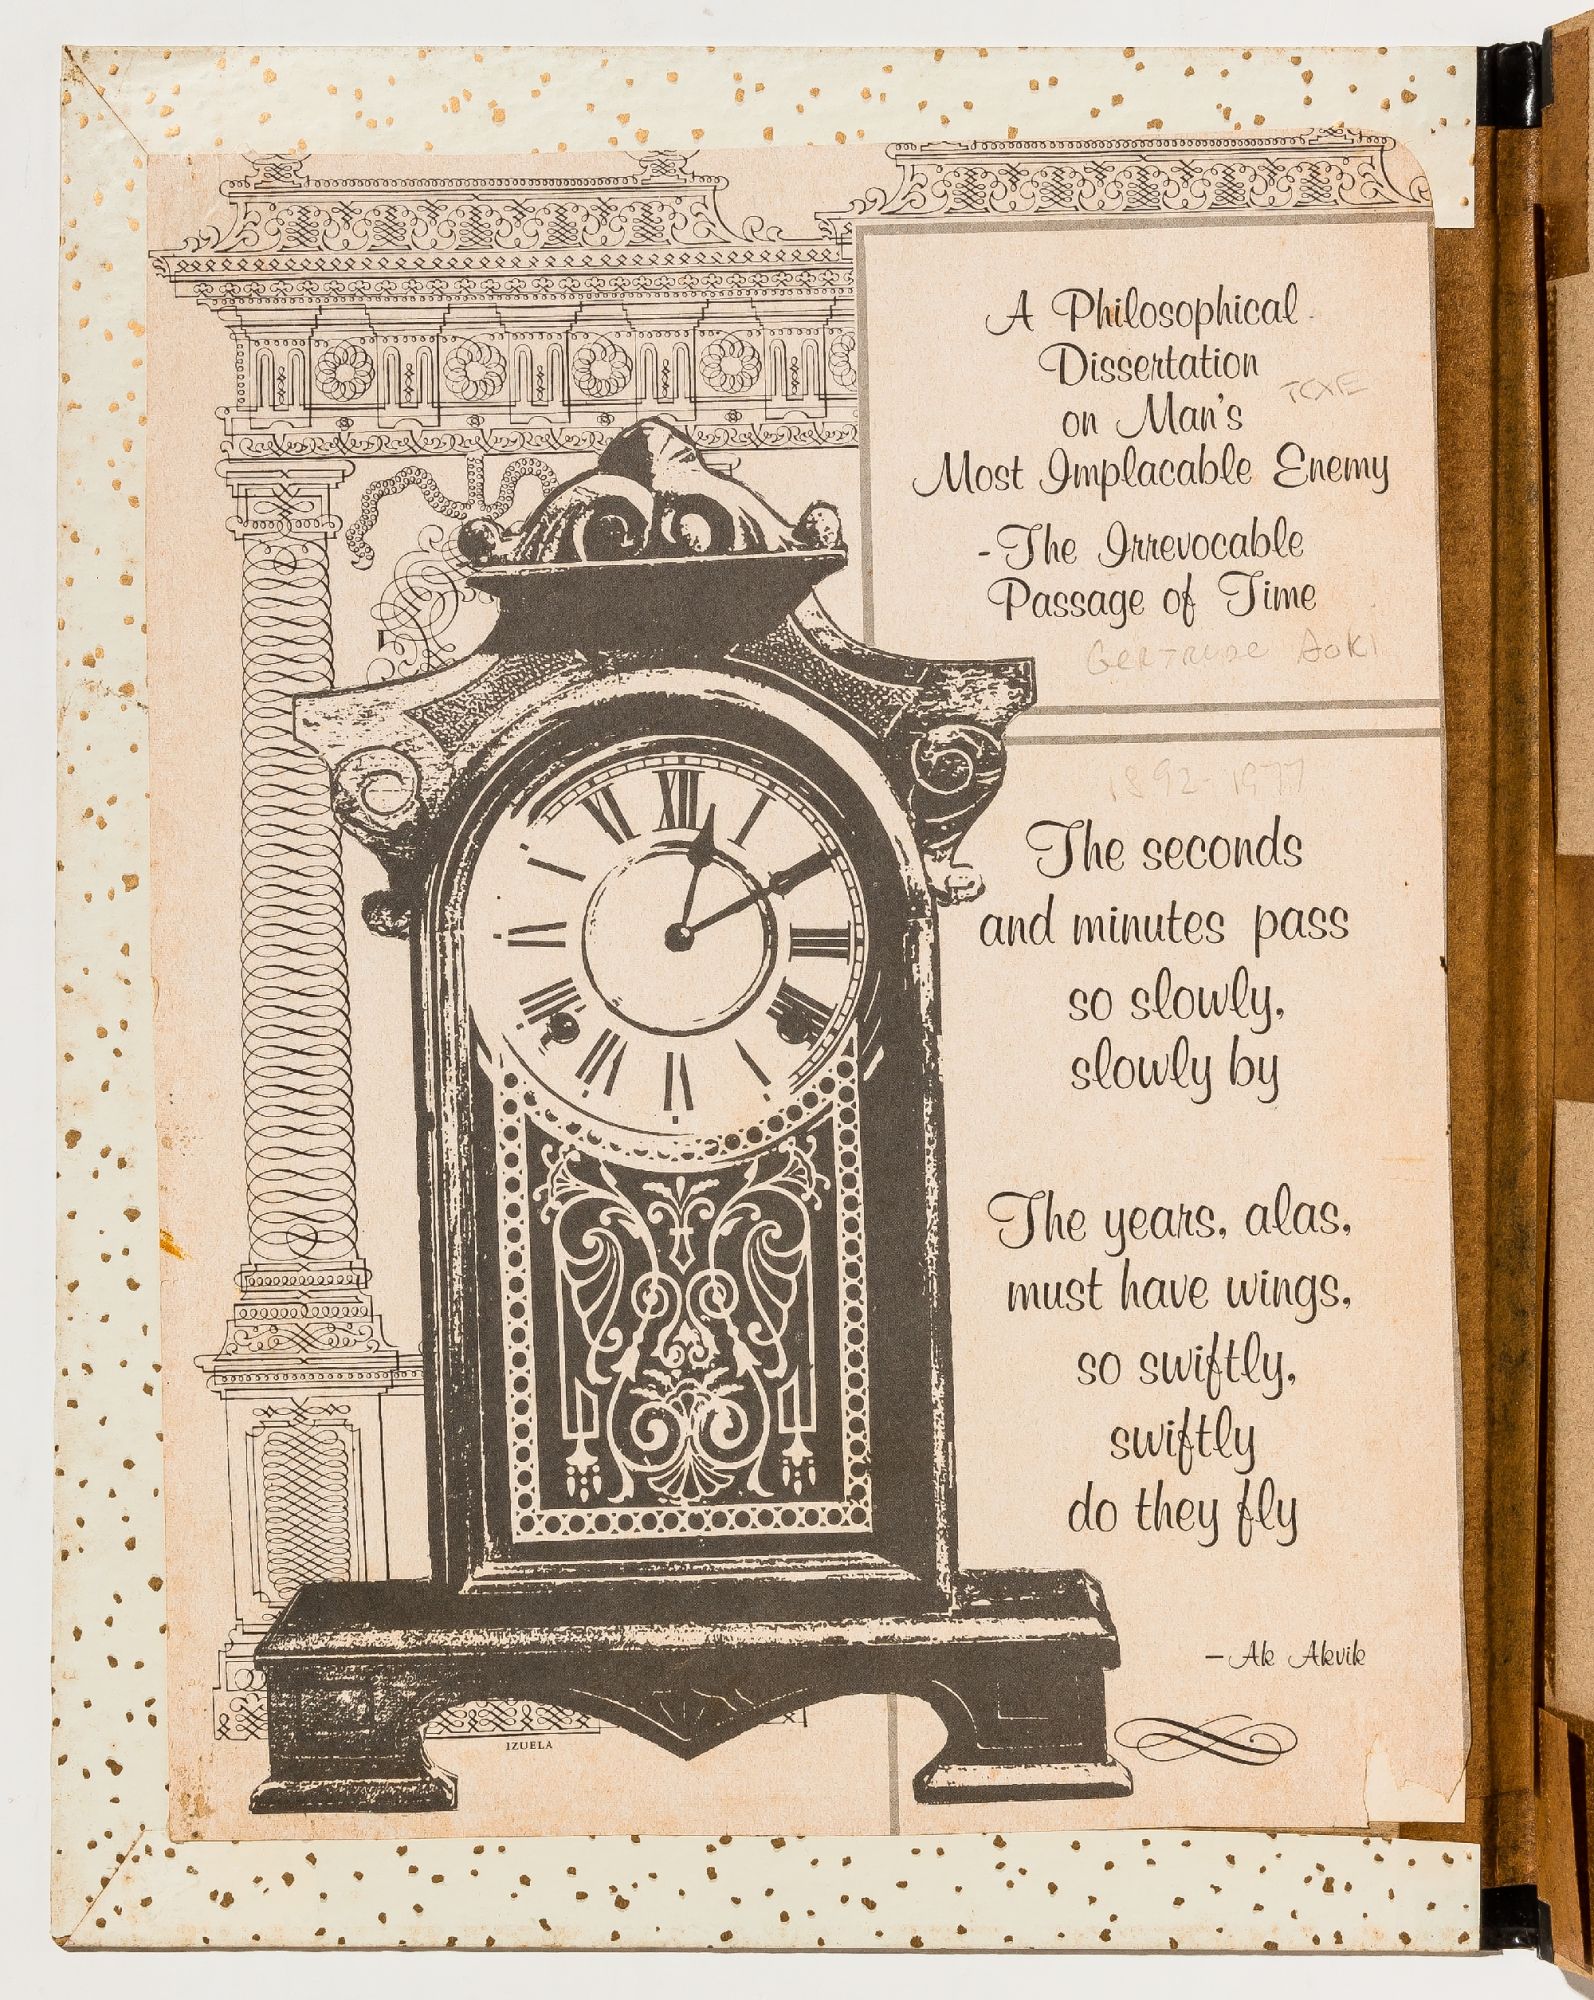 A Philosophical
Dissertation
on Man's
Most Implacable Enemy
-The Irrevocable
Passage of Time
Gertrude Aoki
1892-1977
The seconds
and minutes pass
so slowly,
slowly by
The years, alas,
must have wings,
so swiftly,
swiftly
do they fly
—Ak Akvik
XII
I
IZUELA